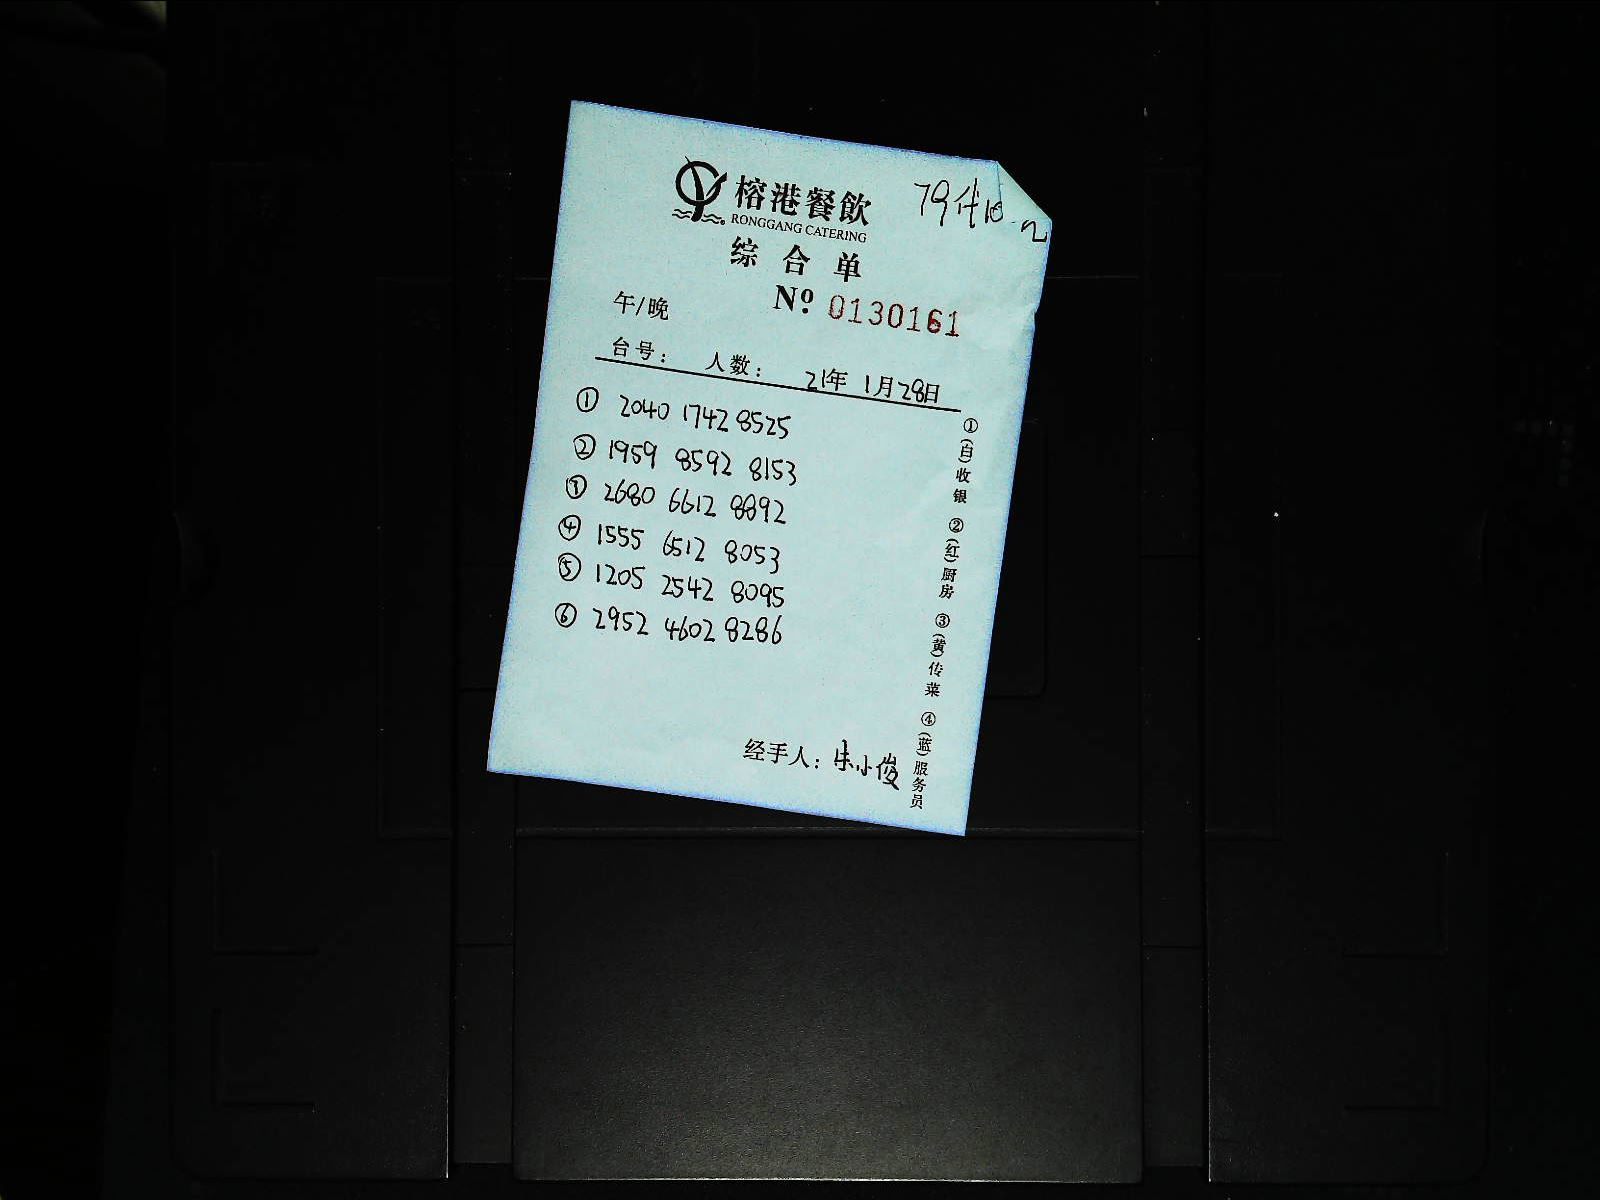 榕港餐飲
RONGGANG CATERING
79
综合单
午/晚
Nº 0130161
台号： 人数： 21年 1月28日
① 2040 1742 8525
② 1959 8592 8153
③ 2680 6612 8892
④ 1555 6512 8053
⑤ 1205 2542 8095
⑥ 2952 4602 8286
①(白)收银 ②(红)厨房 ③(黄)传菜 ④(蓝)服务员
经手人：朱小俊